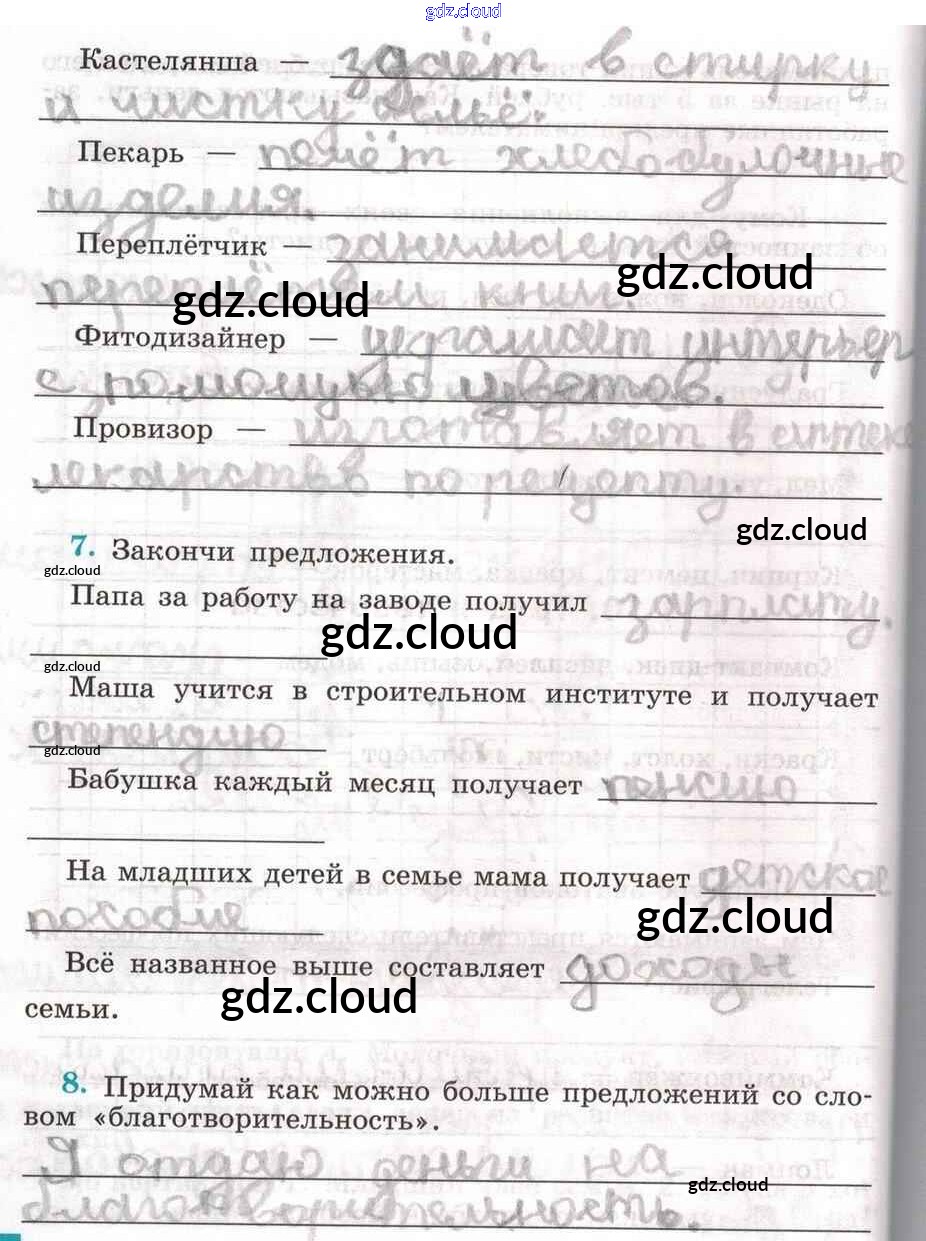 gdz.cloud
Кастелянша — здаёт в стирку
и чистку бельё.
Пекарь — печёт хлебобулочные
изделия.
Переплётчик — занимается
gdz.cloud
переплётом книг.
gdz.cloud
Фитодизайнер — украшает интерьер
с помощью цветов.
Провизор — изготавляет в аптеке
лекарства по рецепту.
gdz.cloud
7. Закончи предложения.
gdz.cloud
Папа за работу на заводе получил зарплату.
gdz.cloud
gdz.cloud
Маша учится в строительном институте и получает
степендию
gdz.cloud
Бабушка каждый месяц получает пенсию
На младших детей в семье мама получает детское
пособие
gdz.cloud
Всё названное выше составляет доходы
gdz.cloud
семьи.
8. Придумай как можно больше предложений со сло-
вом «благотворительность».
Я отдаю деньги на
gdz.cloud
благотворительность.